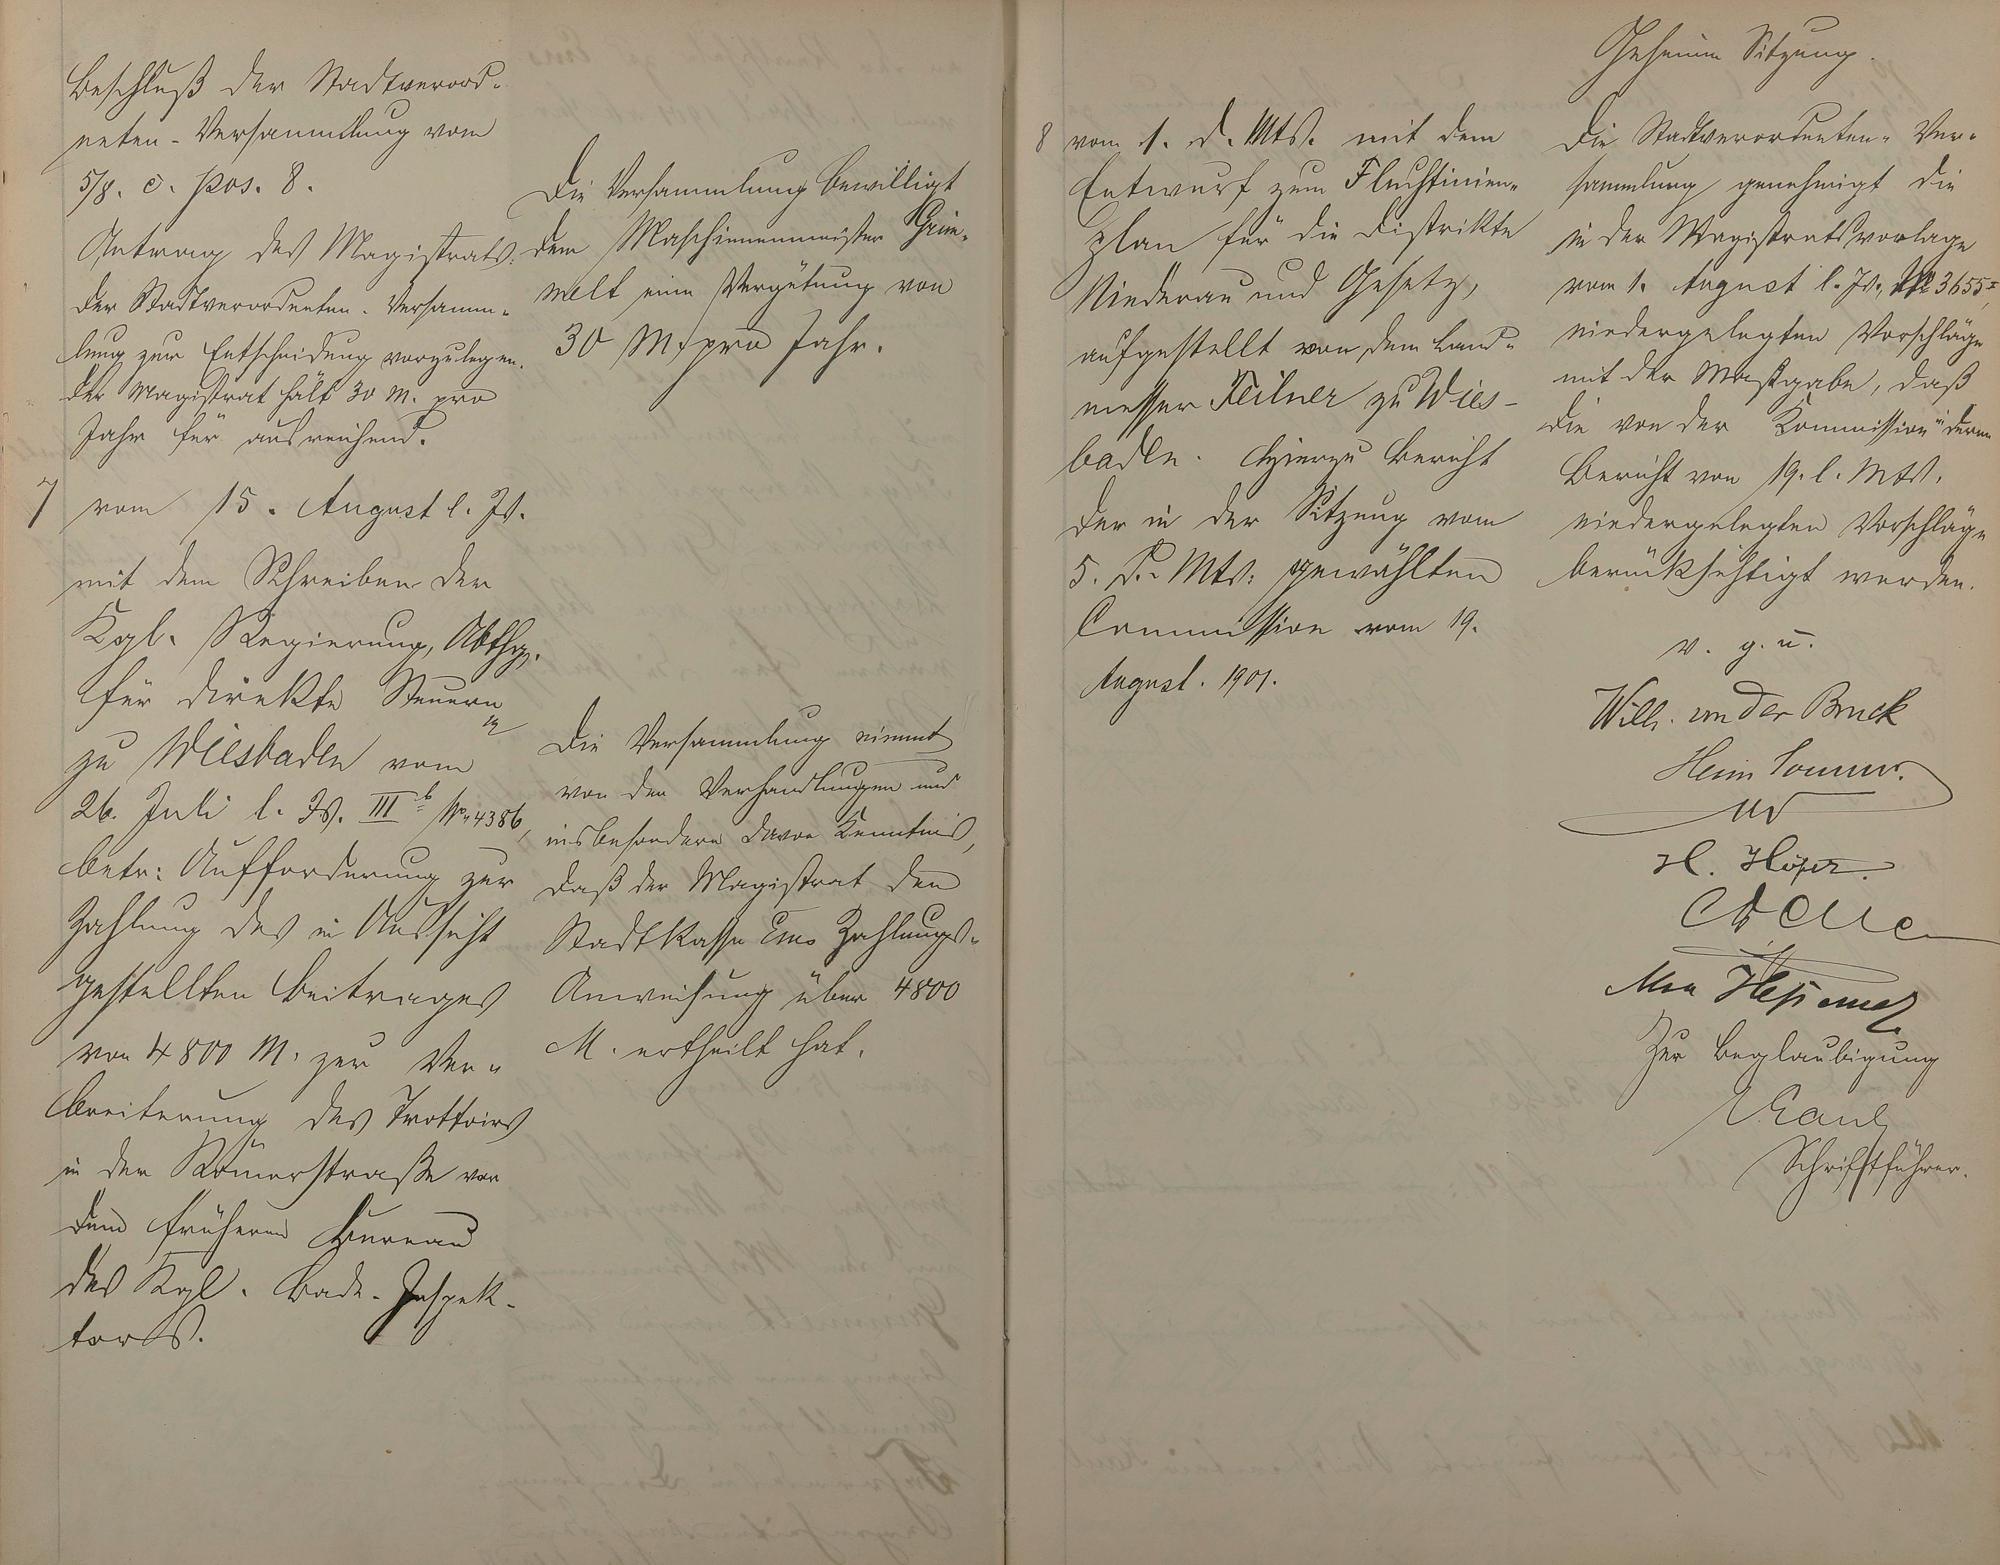 Beschluß der Stadtverord-
neten-Versammlung vom
5/8. c. pos. 8.
Antrag des Magistrats:
der Stadtverordneten-Versamm-
lung zur Entscheidung vorzulegen.
Der Magistrat hält 30 M. pro
Jahr für ausreichend.
Die Versammlung bewilligt
dem Maschinenmeister Grim-
melt eine Vergütung von
30 M. pro Jahr.
7 vom 15. August l. Js.
mit dem Schreiben der
Kgl. Regierung, Abthg.
für direkte Steuern
zu Wiesbaden vom
26. Juli l. Js. III b No. 4386,
betr: Aufforderung zur
Zahlung des in Aussicht
gestellten Beitrages
von 4800 M. zur Ver-
breiterung des Trottoirs
in der Römerstraße vor
dem früheren Bureau
des Kgl. Bade-Inspek-
tors.
Die Versammlung nimmt
von den Verhandlungen und
insbesondere davon Kenntnis,
daß der Magistrat den
Stadtkasse Ems Zahlungs-
Anweisung über 4800
M. ertheilt hat.
8 vom 1. d. Mts. mit dem
Entwurf zum Fluchtlinien-
plan für die Distrikte
Niederau und Gesetz,
aufgestellt von dem Land-
messer Feilner zu Wies-
baden. Hierzu Bericht
der in der Sitzung vom
5. d. Mts. gewählten
Commission vom 19.
August. 1901.
Geheime Sitzung.
Die Stadtverordneten-Ver-
sammlung genehmigt die
in der Magistratsvorlage
vom 1. August l. Js., No 3655 I,
niedergelegten Vorschläge
mit der Maßgabe, daß
die von der Kommission in deren
Bericht von 19. l. Mts.
niedergelegten Vorschläge
berücksichtigt werden.
v. g. u.
Wilh. von der Bruck
Hein Sommer.
H. Höfer.
Zur Beglaubigung
Kaul
Schriftführer.